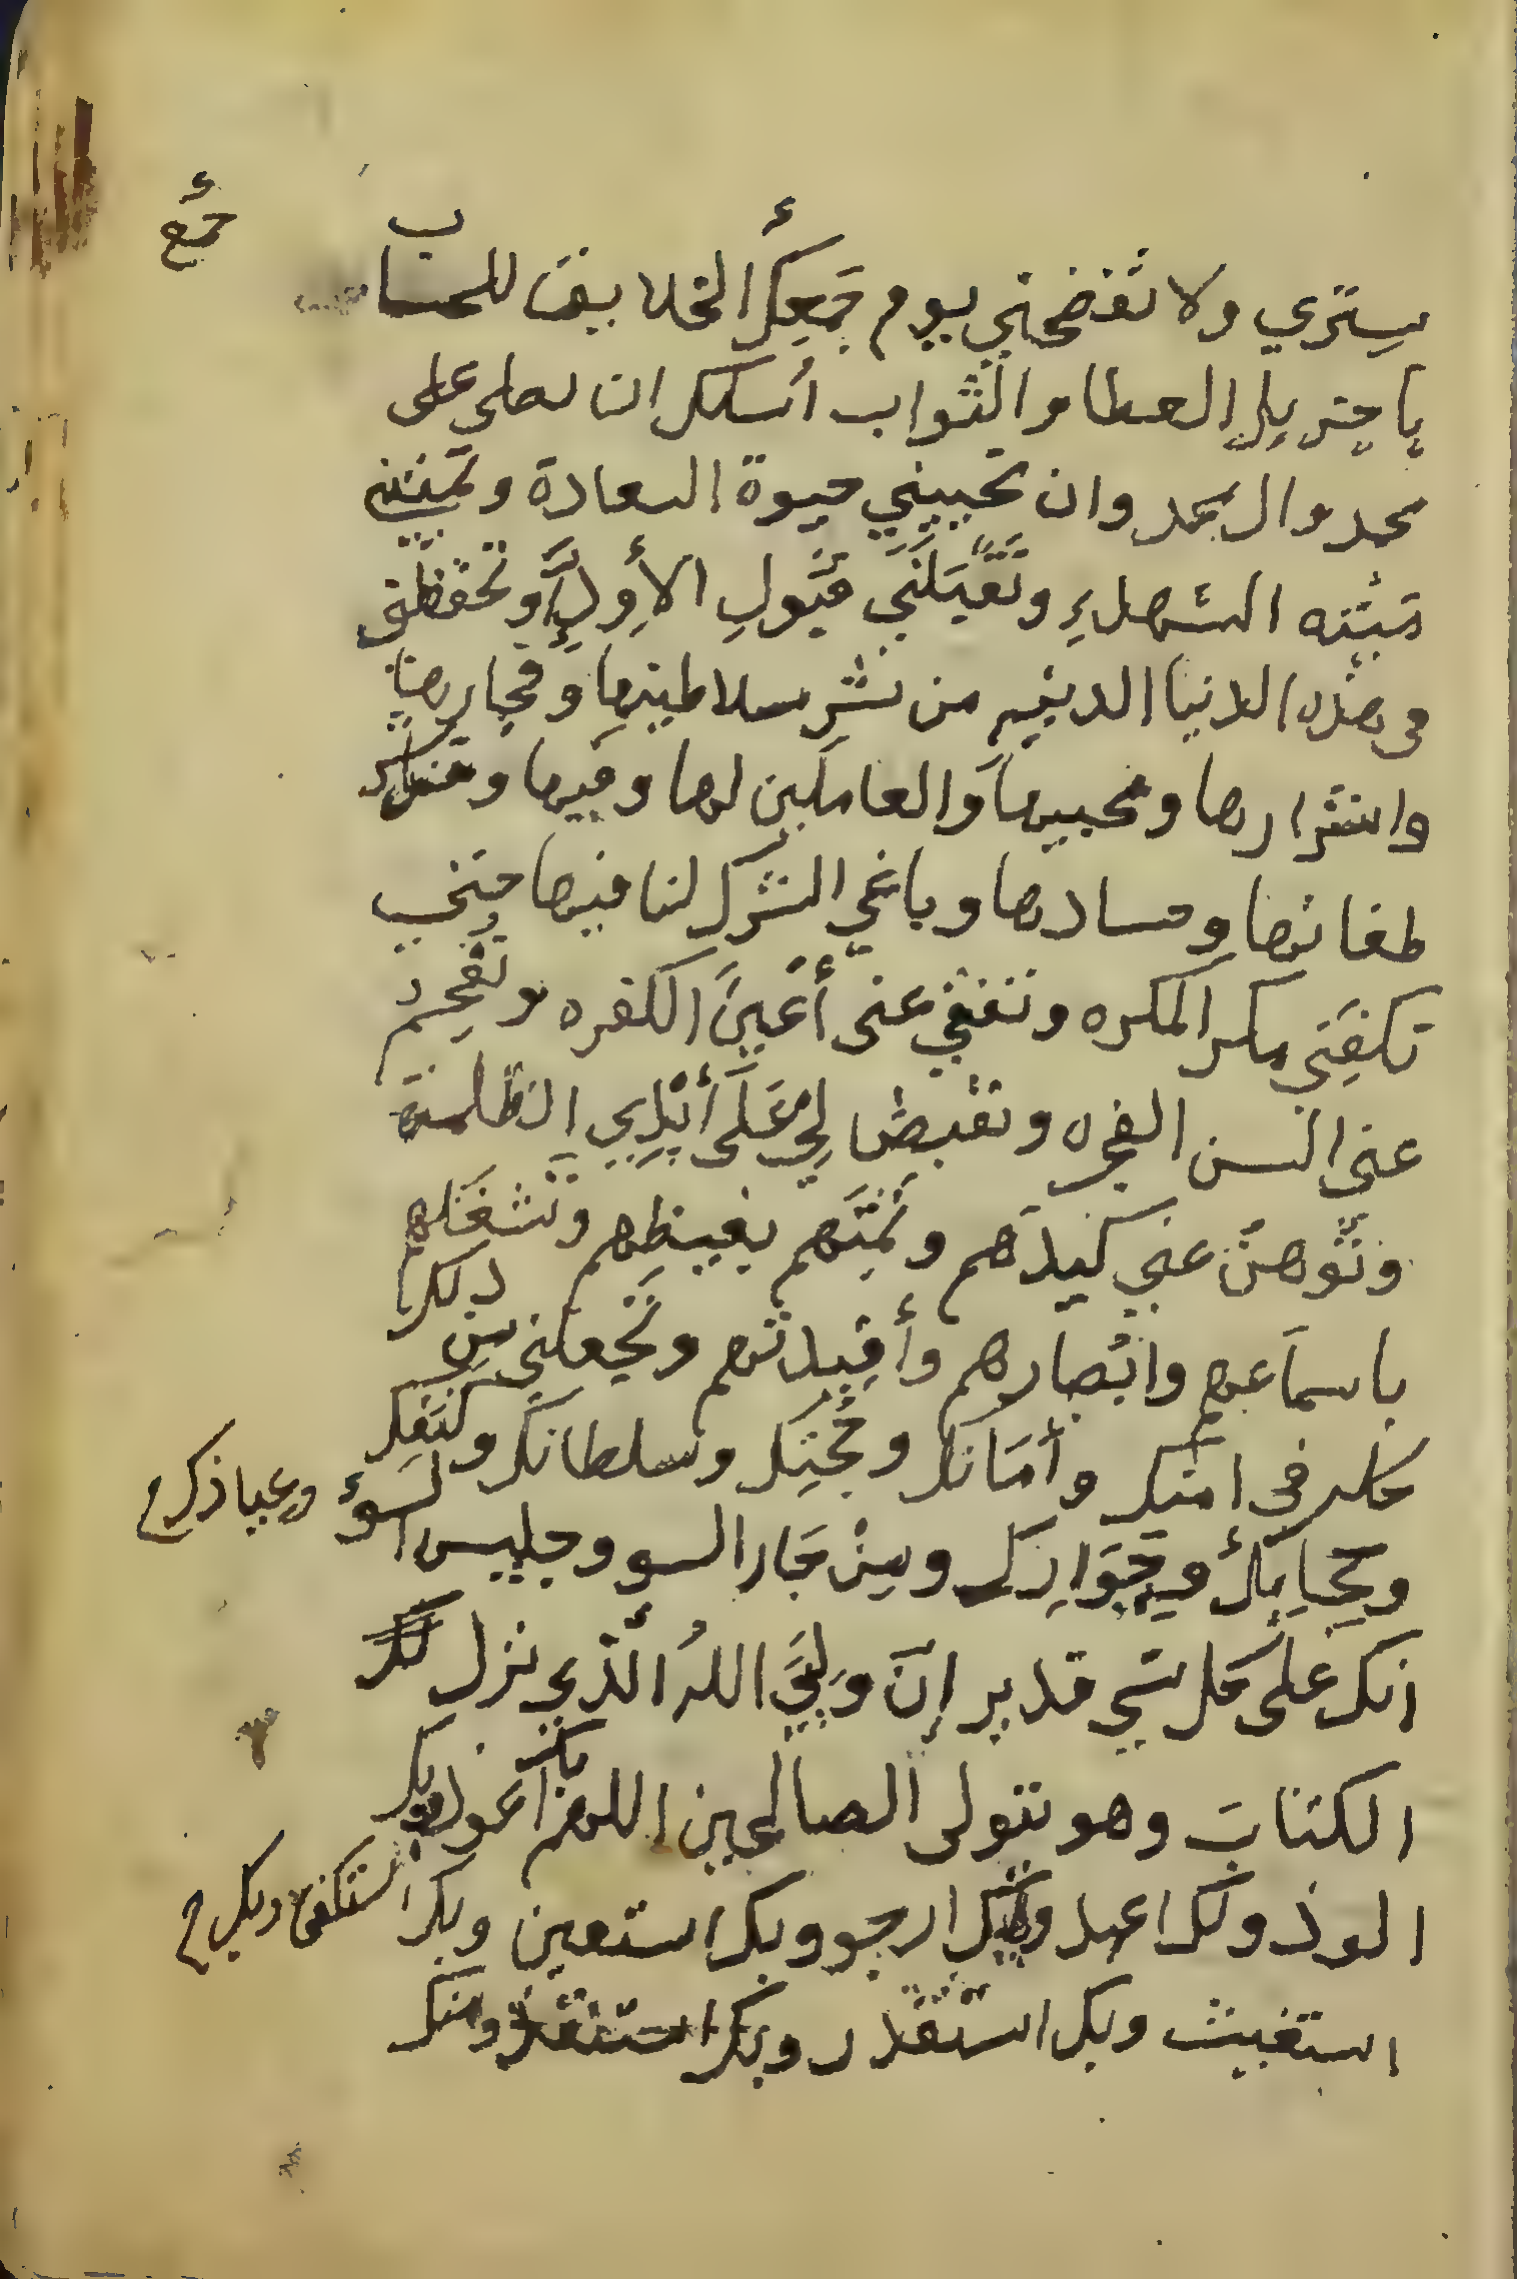 جمع
ستري ولا تفضحني يوم جمعك الخلايق للحساب
يا جزيل العطا والثواب اسلك ان تصلي على
محمد وال محمد وان تحييني حيوة السعادة وتميتني
ميته الشهداء وتقبلني قبول الأولآء وتحفظني
في هذه الدنيا الدنيه من شر سلاطينها وفجارها
واشرارها ومحبيها والعاملين لها وفيها وقني شر
طغاتها وحسادها وباغي الشرك لنا فيها حتى
تكفني مكر المكره وتفقي عني أعين الكفره وتفحم
عني السن الفجره وتقبض لي على أيدي الظلمة
وتوهن عني كيدهم وتميتهم بغيظهم وتشغلهم
باسماعهم وابصارهم وأفئدتهم وتجعلني من ذلك
كله في امنك وأمانك وحجبك وسلطانك وكنفك
وحجابك وجوارك ومن جار السو وجليس السوء وعياذك
انك على كل شي قدير إن وليي الله الذي نزل
الكتاب وهو يتولى الصالحين اللهم بك اعوذ وبك
الوذ ولك اعبد وإياك ارجو وبك استعين وبك استكفي وبك
استغيث وبك استقدر وبك استنقذ ومنك